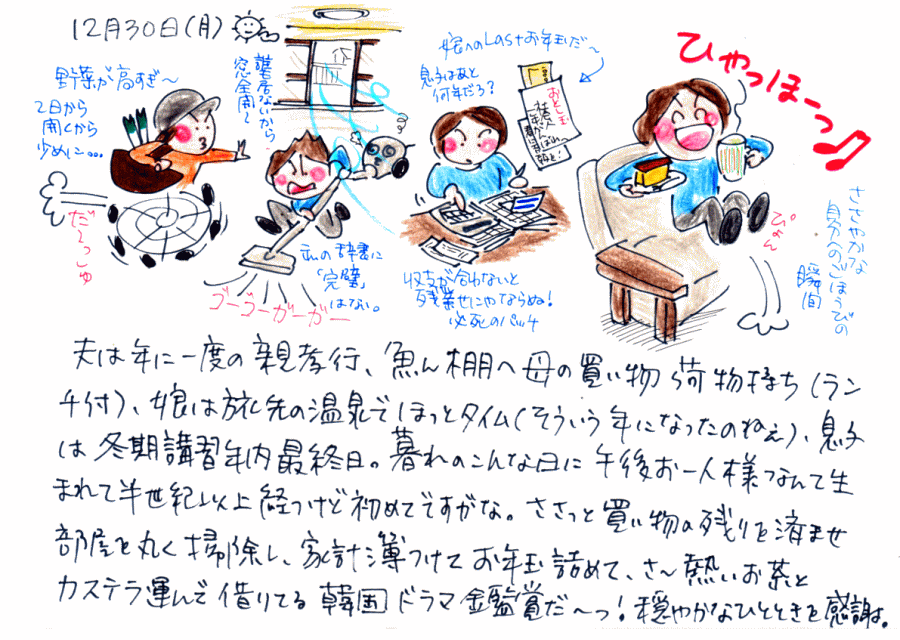 12月30日(月)
野菜が高すぎ〜
2日から
開くから
少めに…
だ〜っしゅ
誰も居ないから
窓全開〜
私の辞書に
「完璧」
はない。
ゴーゴーガーガー
娘へのLastお年玉だ〜
息子はあと
何年だろ?
おとし玉
収支が合わないと
残業せにゃならぬ!
必死のパッチ
ひゃっほーっ♪
ぴょん
ささやかな
自分へのごほうびの
瞬間
夫は年に一度の親孝行、魚ん棚へ母の買い物荷物持ち(ラン
チ付)、娘は旅先の温泉でほっとタイム(そういう年になったのねぇ)、息子
は冬期講習年内最終日。暮れのこんな日に午後お一人様なんて生
まれて半世紀以上経つけど初めてですがな。ささっと買い物の残りを済ませ
部屋を丸く掃除し、家計簿つけてお年玉詰めて、さ〜熱いお茶と
カステラ運んで借りてる韓国ドラマ鑑賞だ〜っ!穏やかなひとときを感謝。